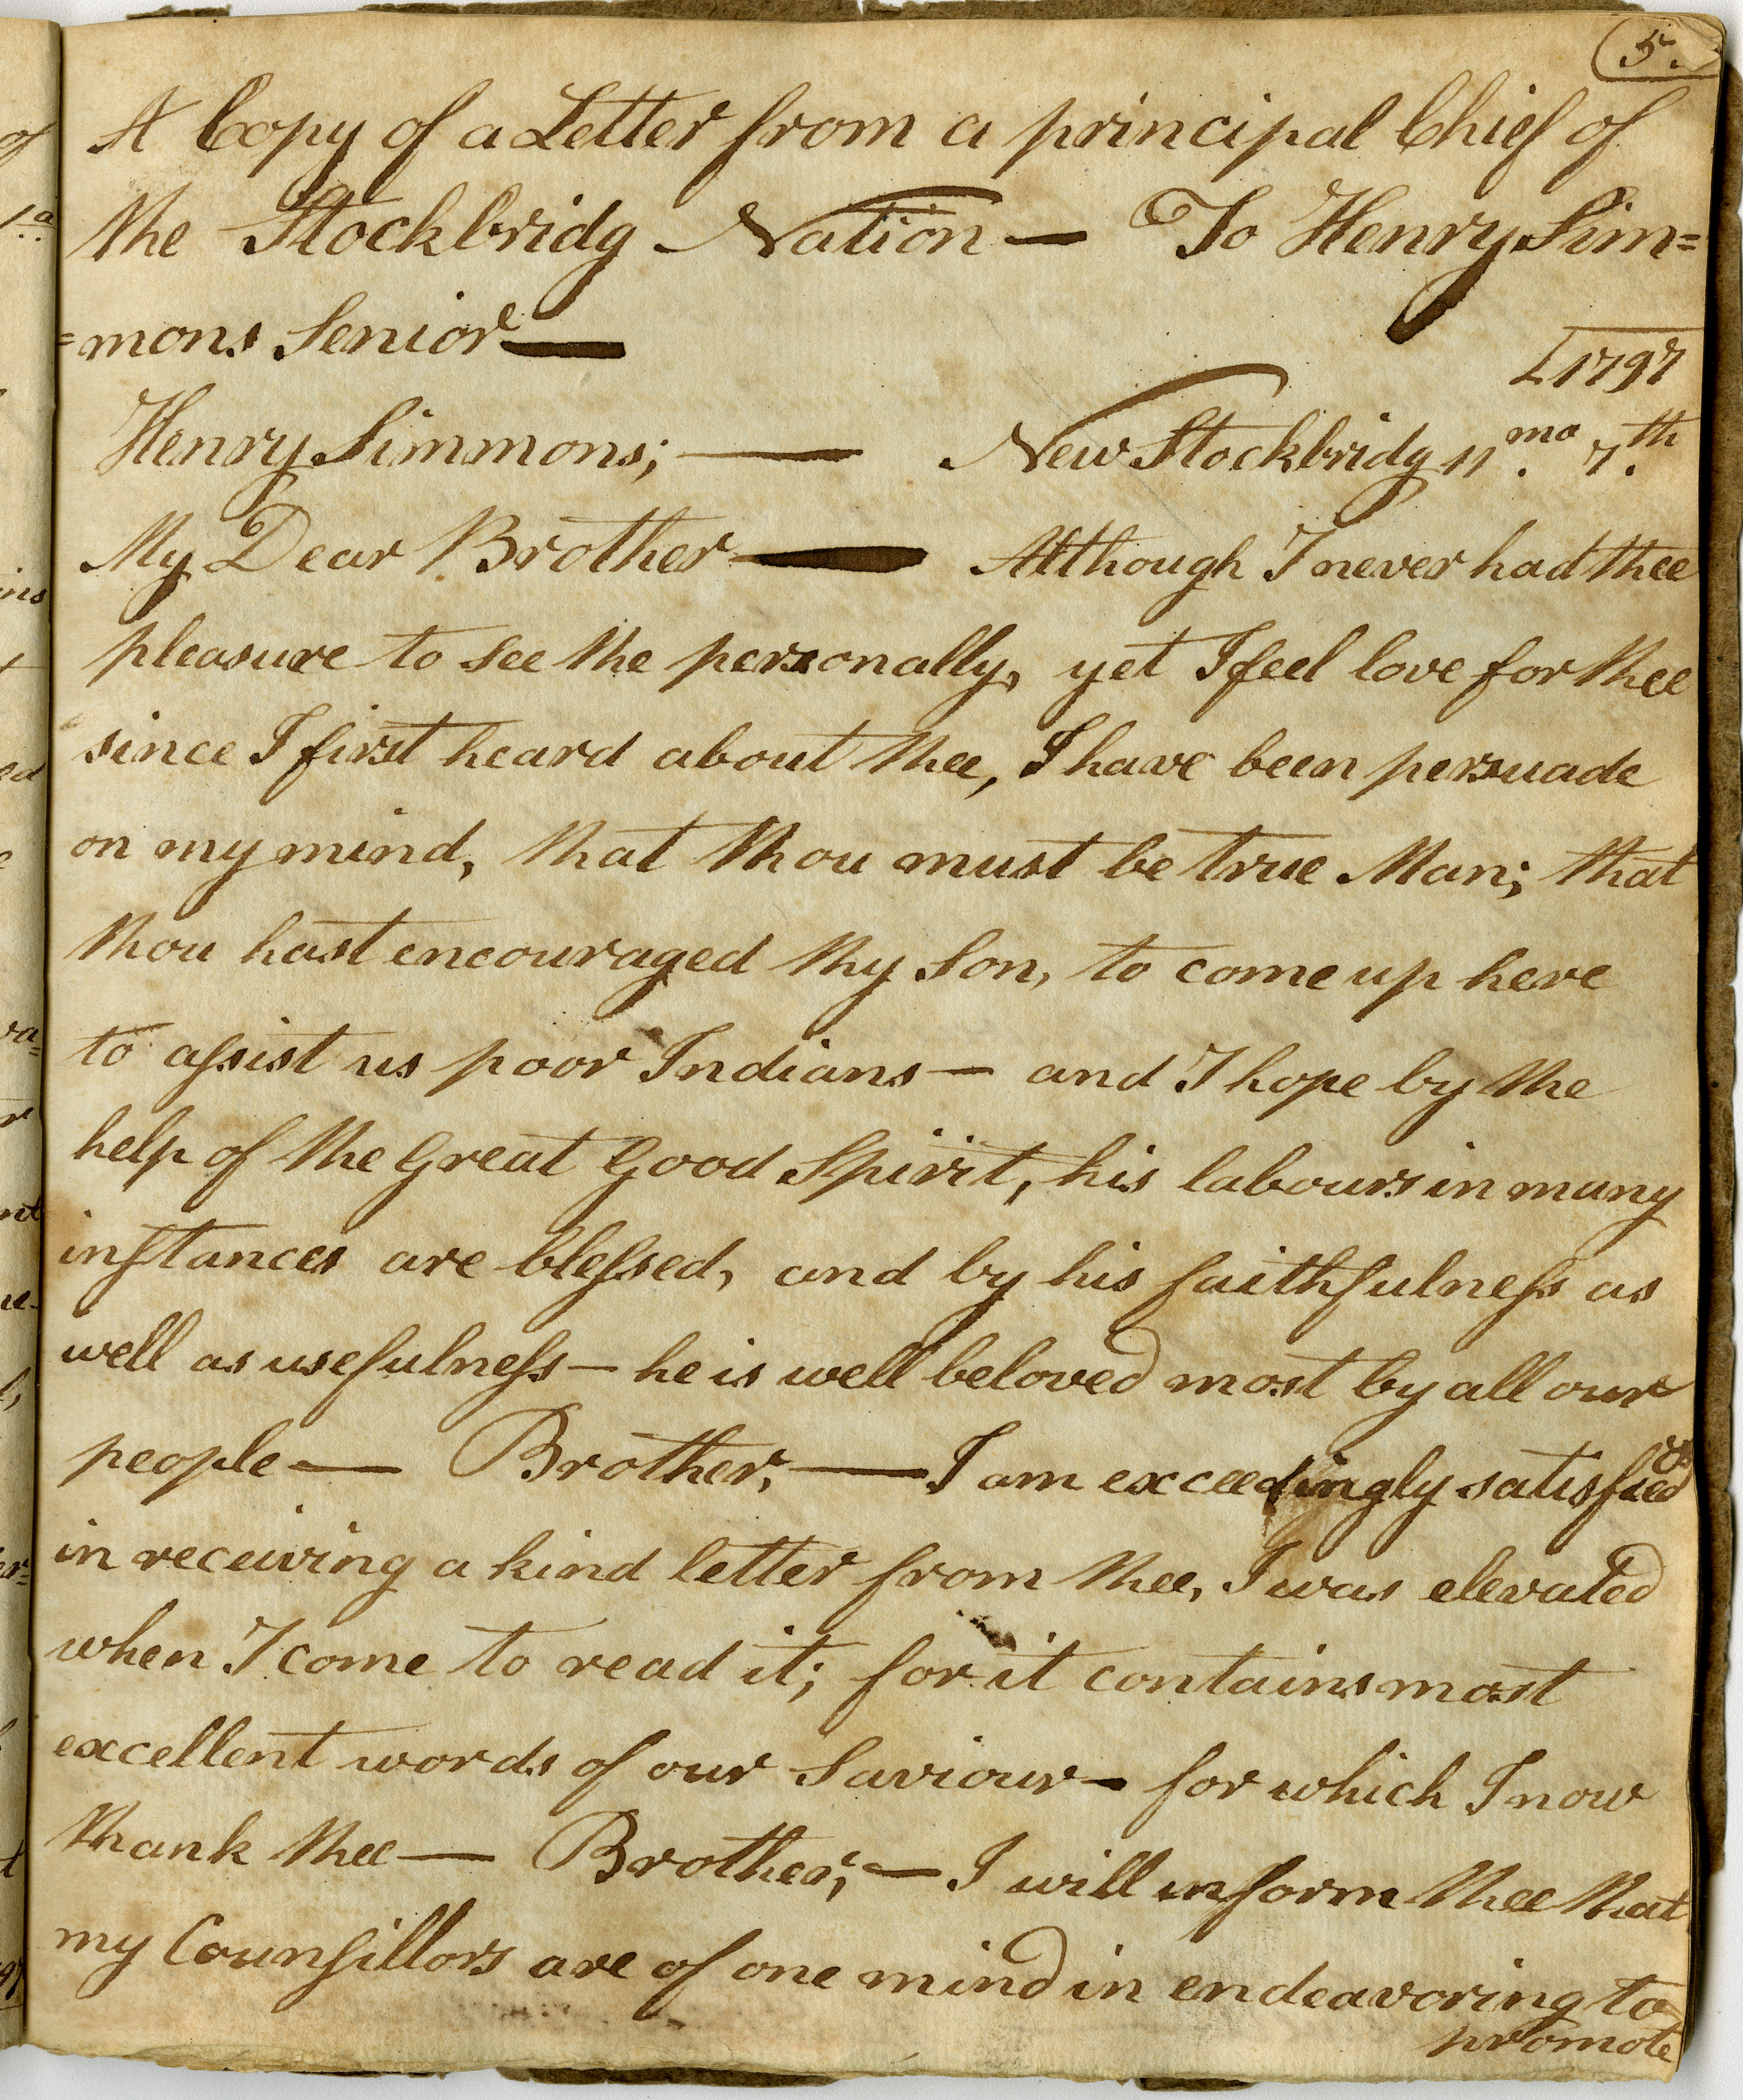 5.
A Copy of a Letter from a principal Chief of
the Stockbridg Nation — To Henry Sim=
=mons Senior —
1797
Henry Simmons; — New Stockbridg 11.mo 7.th
My Dear Brother — Although I never had thee
pleasure to see the personally, yet I feel love for thee
since I first heard about thee, I have been persuade
on my mind, that thou must be true Man; that
thou hast encouraged thy Son, to come up here
to aſsist us poor Indians — and I hope by the
help of the Great Good Spirit, his labours in many
inſtances are bleſsed, and by his faithfulneſs as
well as usefulneſs — he is well beloved most by all our
people — Brother, — I am exceedingly satisfied
in receiving a kind letter from thee, I was elevated
when I come to read it; for it contains most
excellent words of our Saviour — for which I now
thank thee — Brother; — I will inform thee that
my Counſillors are of one mind in endeavoring to
promote